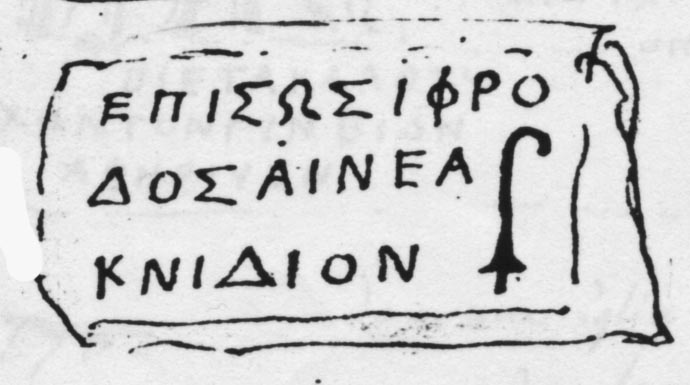 ΕΠΙΣΩΣΙΦΡΟ
ΔΟΣΑΙΝΕΑ
ΚΝΙΔΙΟΝ